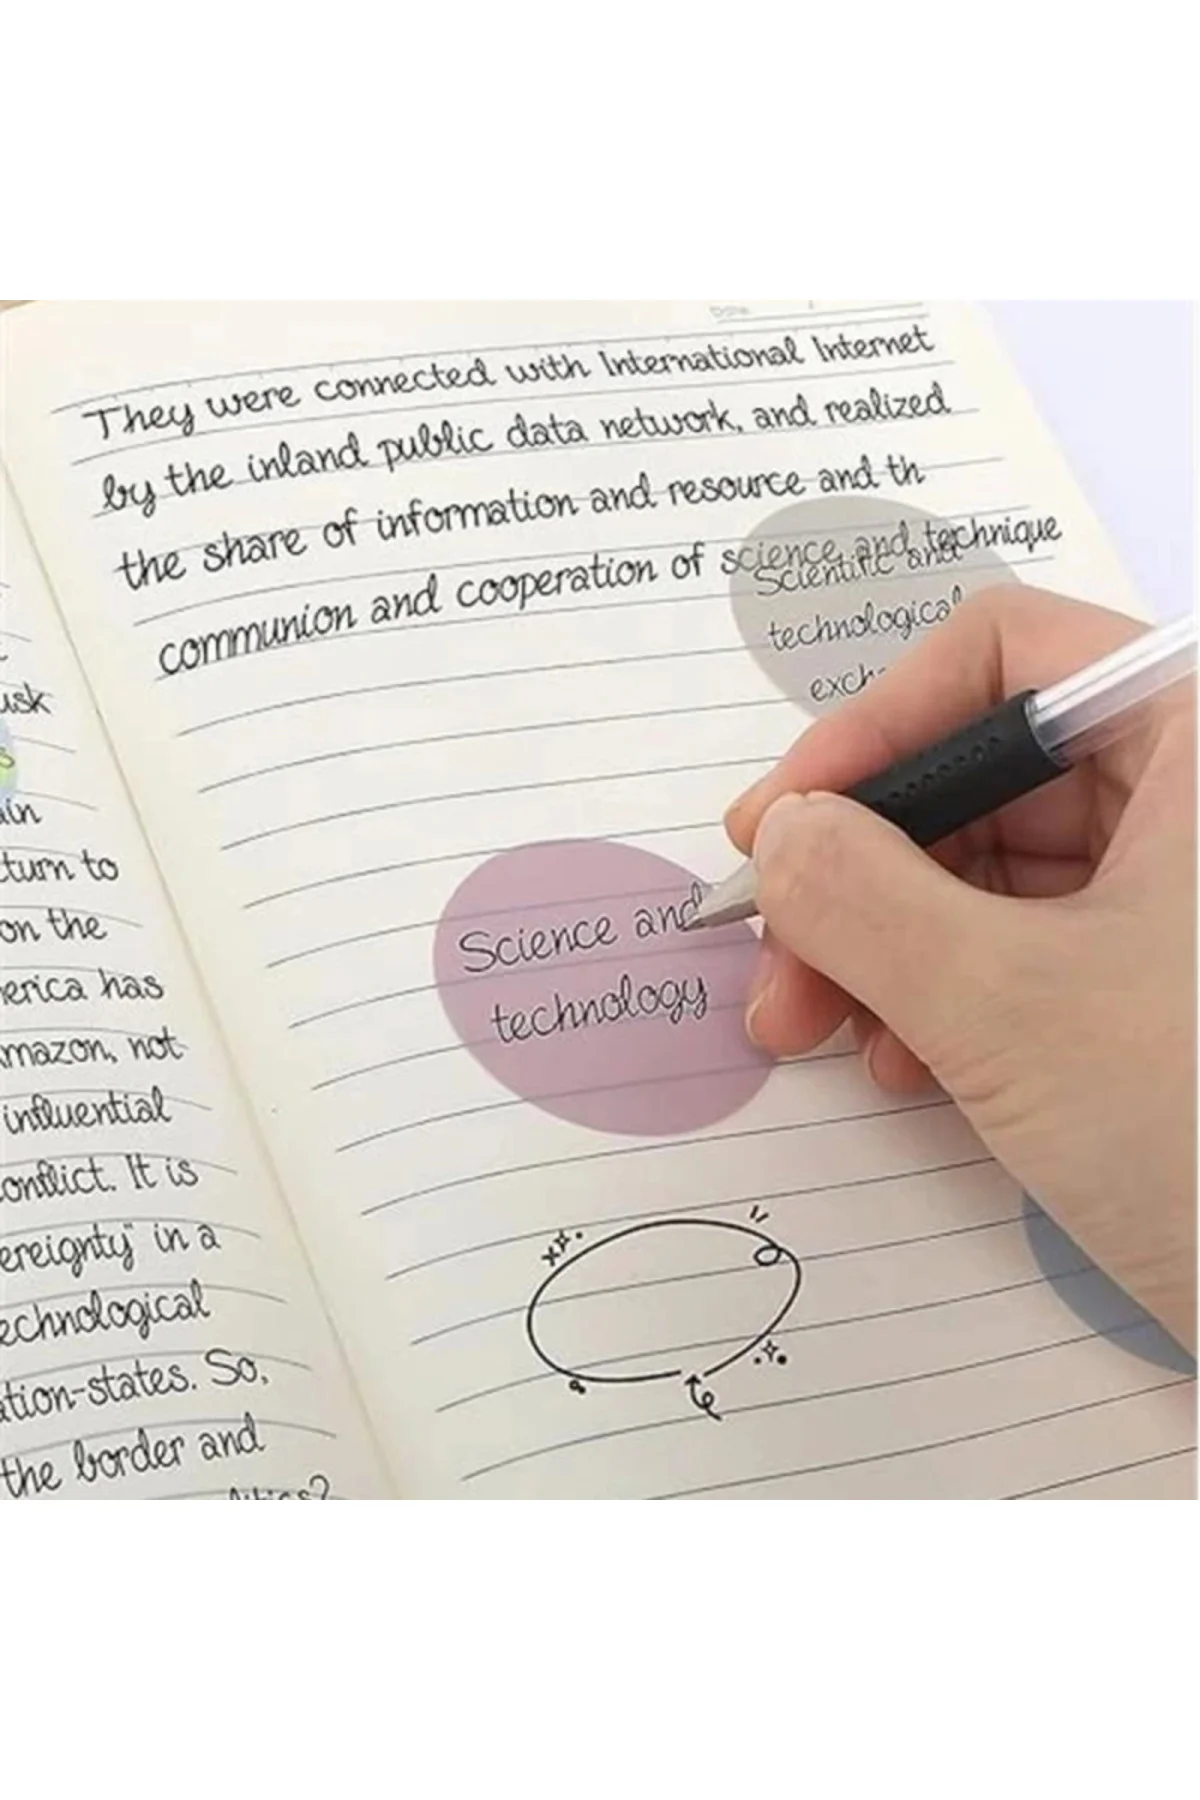 Date
usk
turn to
on the
has
not
influential
It is
in a
So,
the border and
They were connected with International Internet
by the inland public data network, and realized
the share of information and resource and th
communion and cooperation of science and technique
Scientific and
technological
Science and
technology